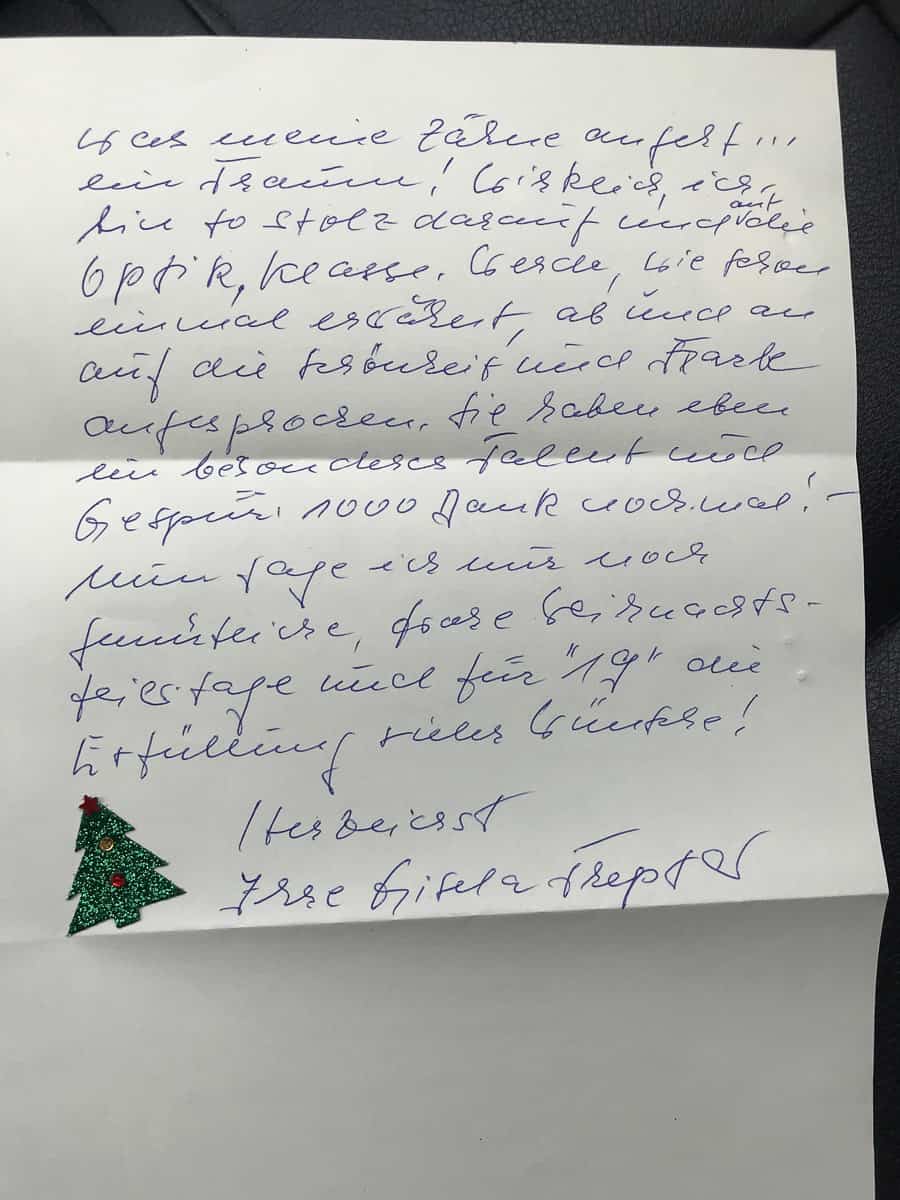 Was meine Zähne angeht...
ein Traum! Wirklich, ich
bin so stolz darauf und auf die
Optik, Klasse. Werde, wie schon
einmal erwähnt, ab und an
auf die Schönheit und Farbe
angesprochen. Sie haben eben
ein besonderes Talent und
Gespür. 1000 Dank nochmal! –
Nun sage ich nur noch
gemütliche, frohe Weihnachts-
feiertage und für "19" die
Erfüllung vieler Wünsche!
Herzlichst
Ihre Gisela Treptow